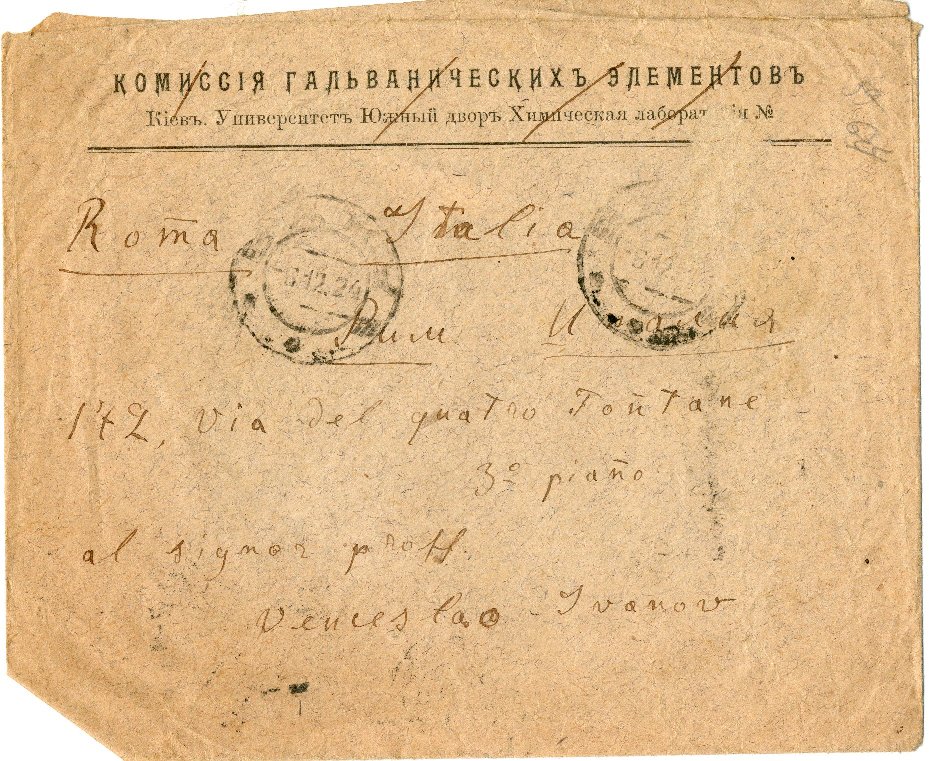 КОМИССІЯ ГАЛЬВАНИЧЕСКИХЪ ЭЛЕМЕНТОВЪ
Кіевъ. Университетъ Южный дворъ Химическая №
Roma Italia
6 12.24
Рим Италия
142, Via del quatro Fontane
3º piano
al signor proff.
Venceslao Ivanov